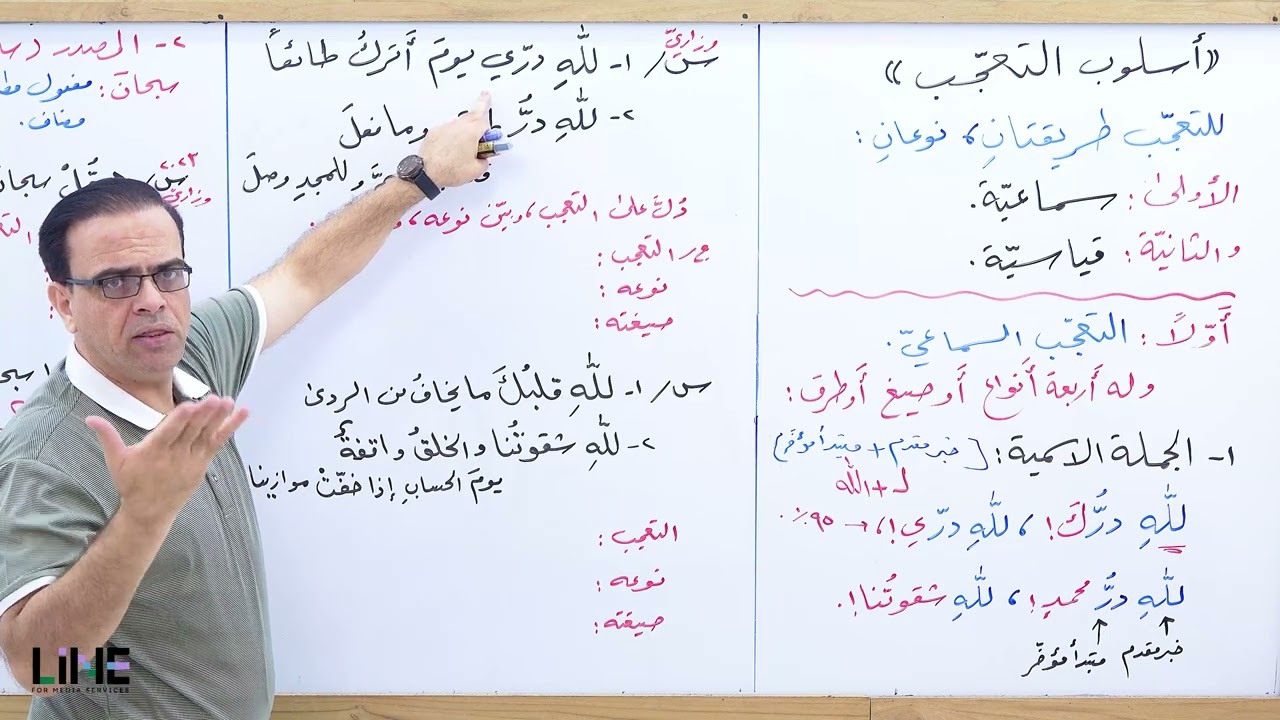 ((أسلوب التعجّب))
للتعجّب طريقتانِ، نوعانِ:
الأولى: سماعيّة.
والثانيّة: قياسيّة.
أَوّلاً: التعجّب السماعيّ.
وله أربعة أنواع أَو صيغ أَو طرق:
١- الجملة الاسمية: [خبر مقدم + مبتدأ مؤخّر]
لـ + الله
للّٰهِ درُّكَ!، للّٰهِ درّي!، → ٩٥٪.
للّٰهِ درُّ محمدٍ!، للّٰهِ شقوتُنا!.
خبر مقدم مبتدأ مؤخّر
وزاريّ
س/ ١- للّٰهِ درّي يومَ أَتركُ طائعاً
٢- للّٰهِ درُّ وما نفلَ
وللمجدِ وصلَ
دُلَّ على التعجب، وبيّن نوعه،
ج/ التعجب:
نوعه:
صيغته:
س/ ١- للّٰهِ قلبُكَ ما يخافُ من الردى
٢- للّٰهِ شقوتُنا والخلقُ واقفةٌ
يومَ الحسابِ إذا خفّتْ موازينا
التعجب:
نوعه:
صيغته:
٢- المصدر
سبحانَ: مفعول
مضاف.
٢٠٢٣
س/
وزاريّ
LINE
FOR MEDIA SERVICES